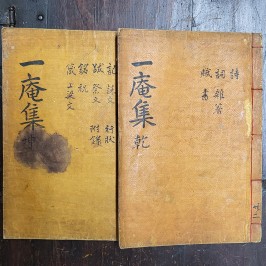 一庵集
乾
詩
詞 雜著
賦 書
共二
一庵集
記 說 文
跋 祭文
銘 祝
箴 上樑文
行狀
附錄